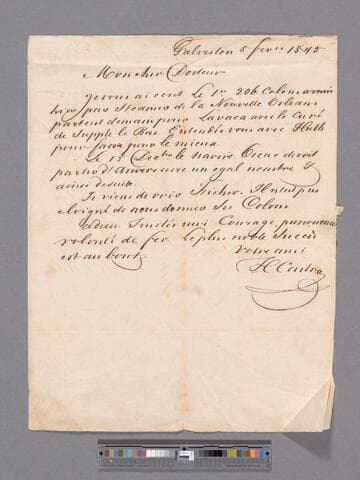 Galveston 5 fevr 1845
Mon cher Docteur
Je vous ai ecrit Le 1er 206 Colons arrivés
hier par Steamer de la Nouvelle Orleans
partent demain pour Lavaca avec le Curé
de Supple Le Bar. Entendez vous avec Huth
pour faire pour le mieux
Le 15 Decbre le navire Oscar devoit
partir d'Anvers avec un egal nombre
ainsi de suite.
Je viens de voir Fisher. Il n'est pas
eloigné de nous donner Ses Colons
adieu Courage perseverance
volonté de fer le plus noble Succès
est au bout.
Votre ami
H Castro